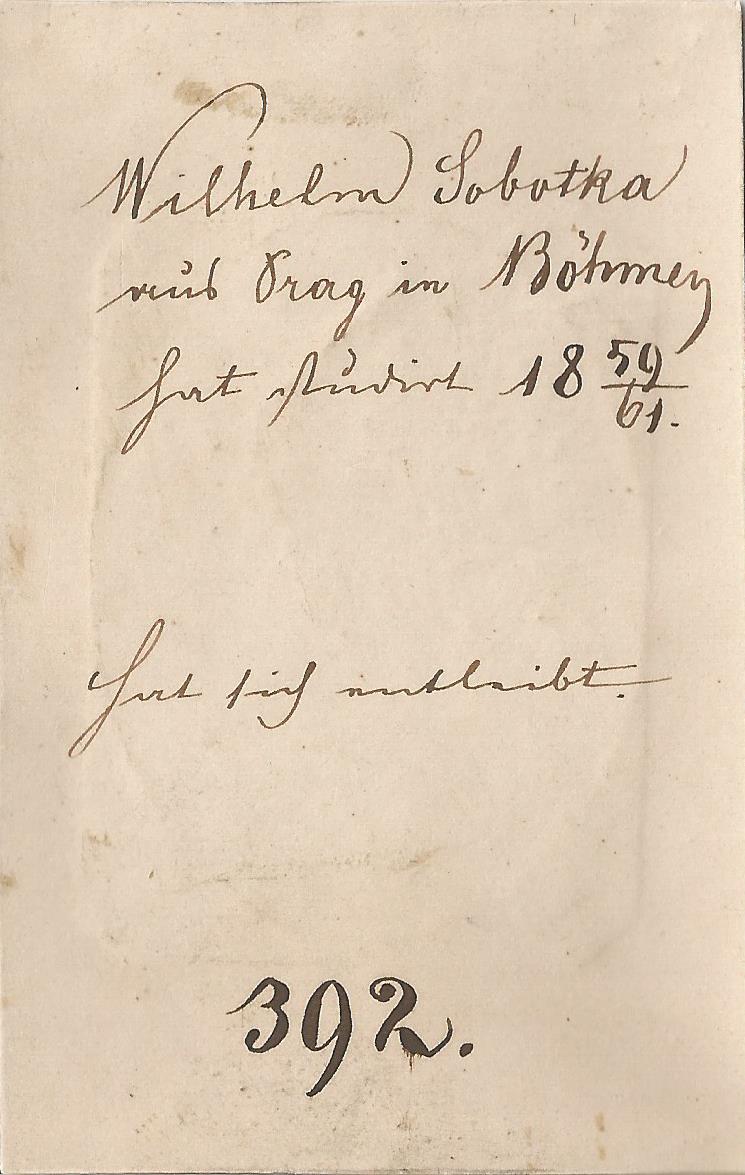 Wilhelm Sobotka
aus Prag in Böhmen
hat studirt 18 59/61.
hat sich entleibt.
392.